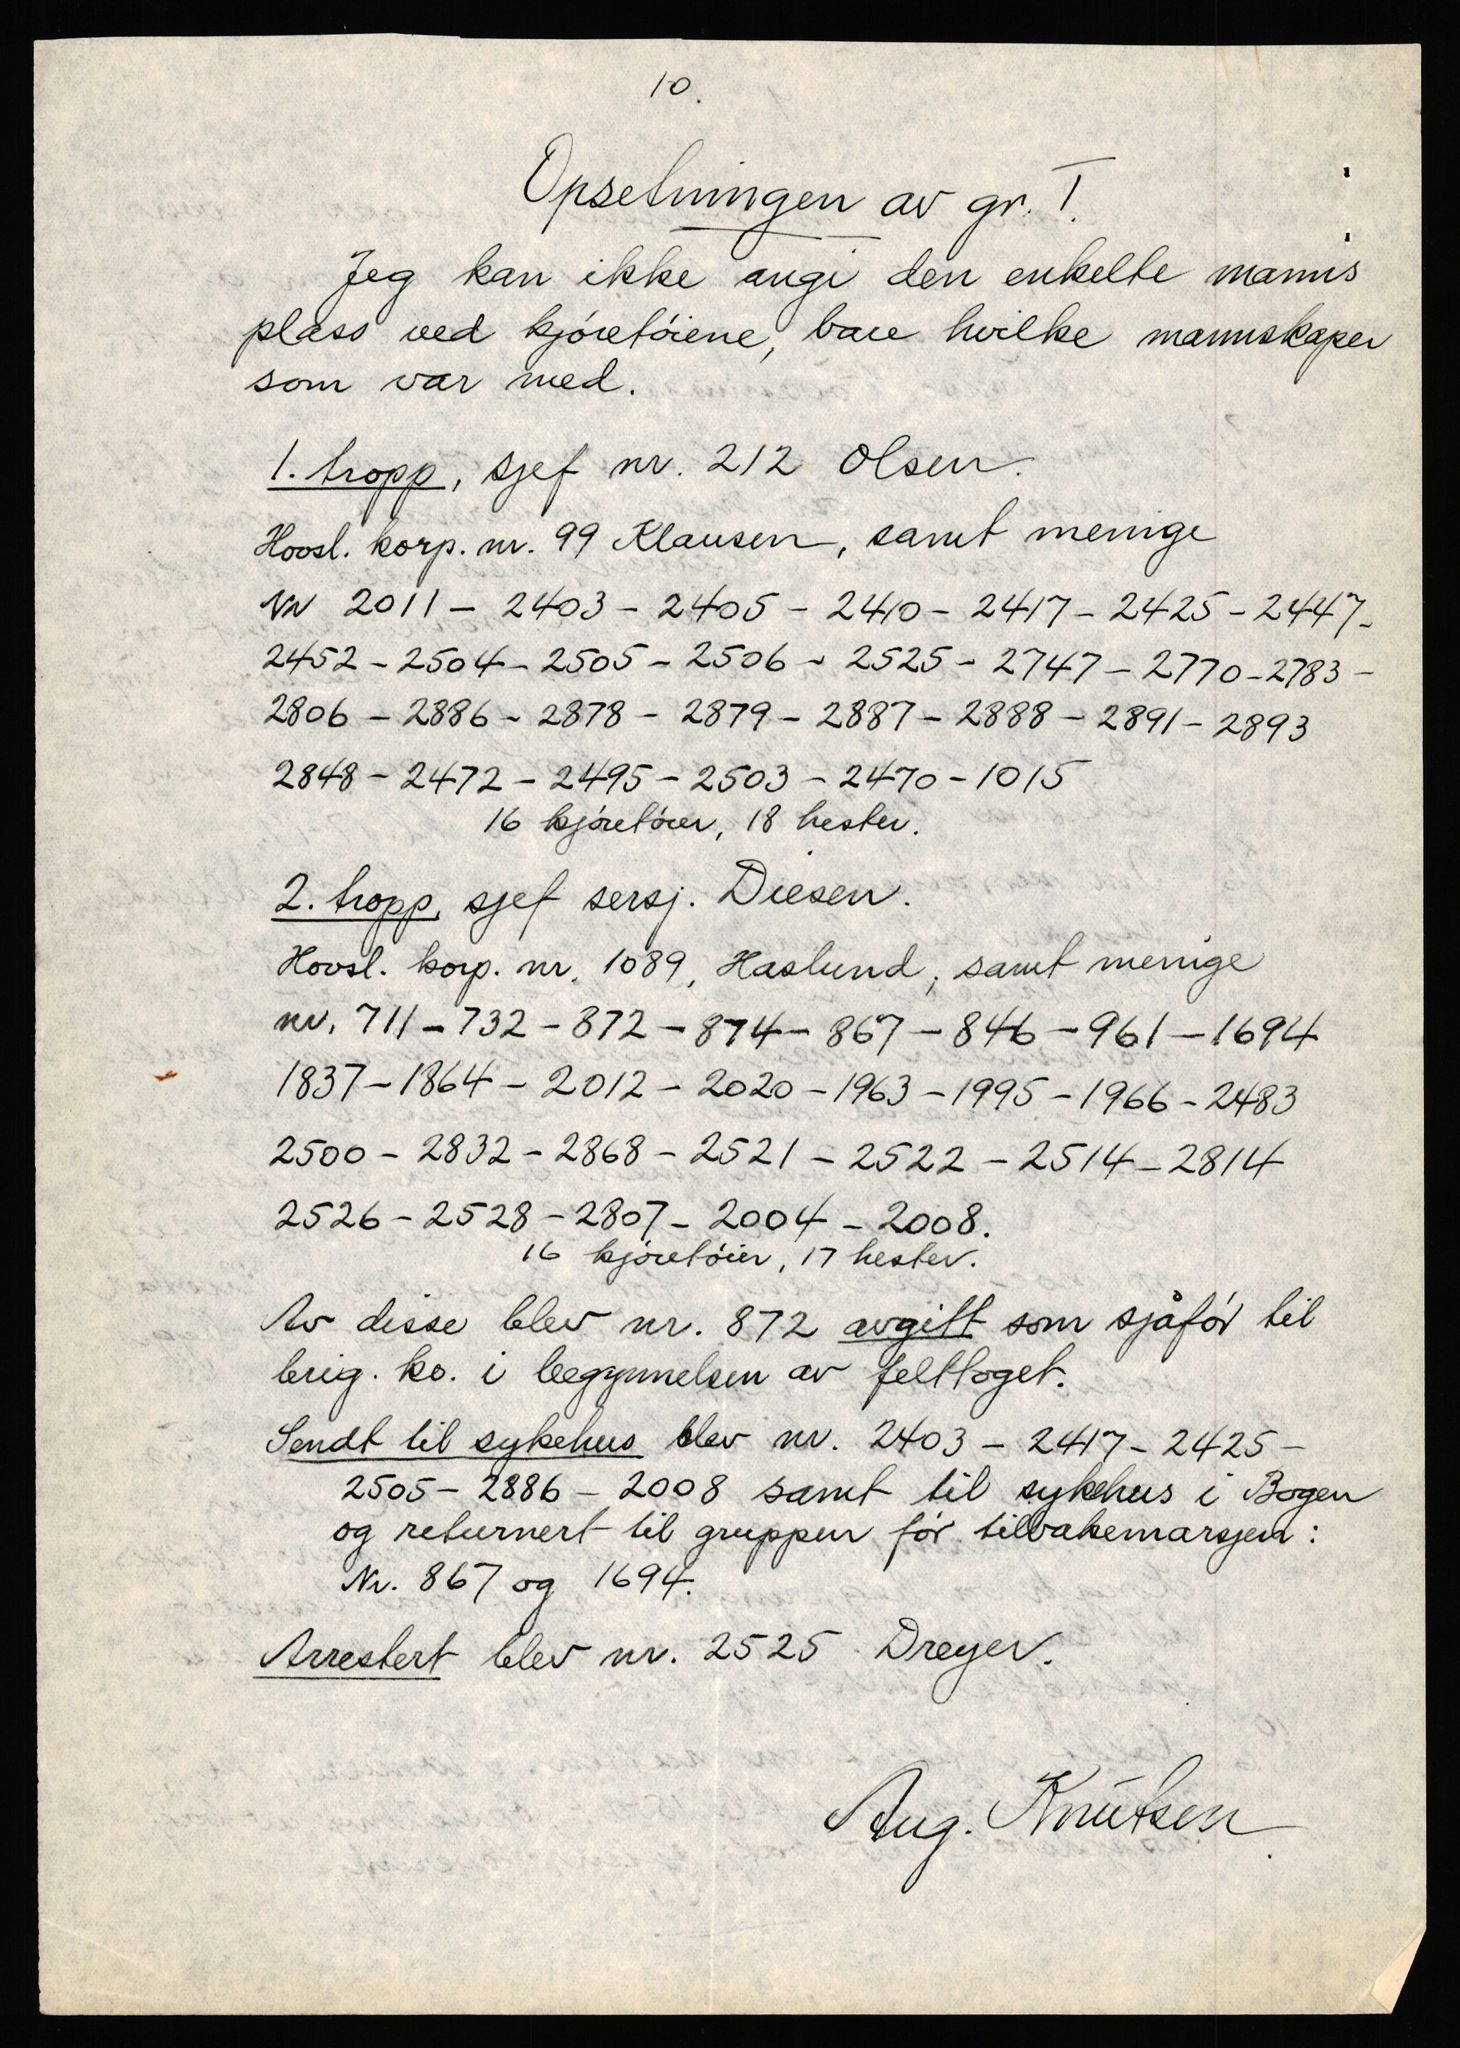 10.
Opsetningen av gr. I.
Jeg kan ikke angi den enkelte manns
plass ved kjøretøiene, bare hvilke mannskaper
som var med.
1. tropp, sjef nr. 212 Olsen.
Hovsl. korp. nr. 99 Klausen, samt menige
Nr 2011 - 2403 - 2405 - 2410 - 2417 - 2425 - 2447 -
2452 - 2504 - 2505 - 2506 - 2525 - 2747 - 2770 - 2783 -
2806 - 2886 - 2878 - 2879 - 2887 - 2888 - 2891 - 2893
2848 - 2472 - 2495 - 2503 - 2470 - 1015
16 kjøretøier, 18 hester.
2. tropp, sjef sersj. Diesen.
Hovsl. korp. nr. 1089, Haslund, samt menige
nr. 711 - 732 - 872 - 874 - 867 - 846 - 961 - 1694
1837 - 1864 - 2012 - 2020 - 1963 - 1995 - 1966 - 2483
2500 - 2832 - 2868 - 2521 - 2522 - 2514 - 2814
2526 - 2528 - 2807 - 2004 - 2008.
16 kjøretøier, 17 hester.
Av disse blev nr. 872 avgitt som sjåfør til
brig. ko. i begynnelsen av felttoget.
Sendt til sykehus blev nr. 2403 - 2417 - 2425 -
2505 - 2886 - 2008 samt til sykehus i Bogen
og returnert til gruppen før tilbakemarsjen:
Nr. 867 og 1694.
Arrestert blev nr. 2525 Dreyer.
Aug. Knutsen